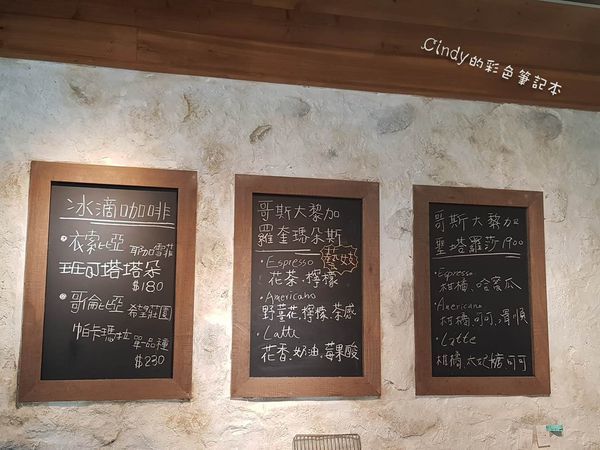 Cindy的彩色筆記本
冰滴咖啡
衣索比亞 耶加雪菲
班可塔塔朵
$180
哥倫比亞 希望莊園
帕卡瑪拉 單一品種
$230
哥斯大黎加
羅奎瑪朵斯
藝妓
Espresso
花茶、檸檬
Americano
野薑花、檸檬、茶感
Latte
花香、奶油、莓果酸
哥斯大黎加
聖塔羅莎1900
Espresso
柑橘、哈蜜瓜
Americano
柑橘、可可、滑順
Latte
柑橘、太妃糖、可可